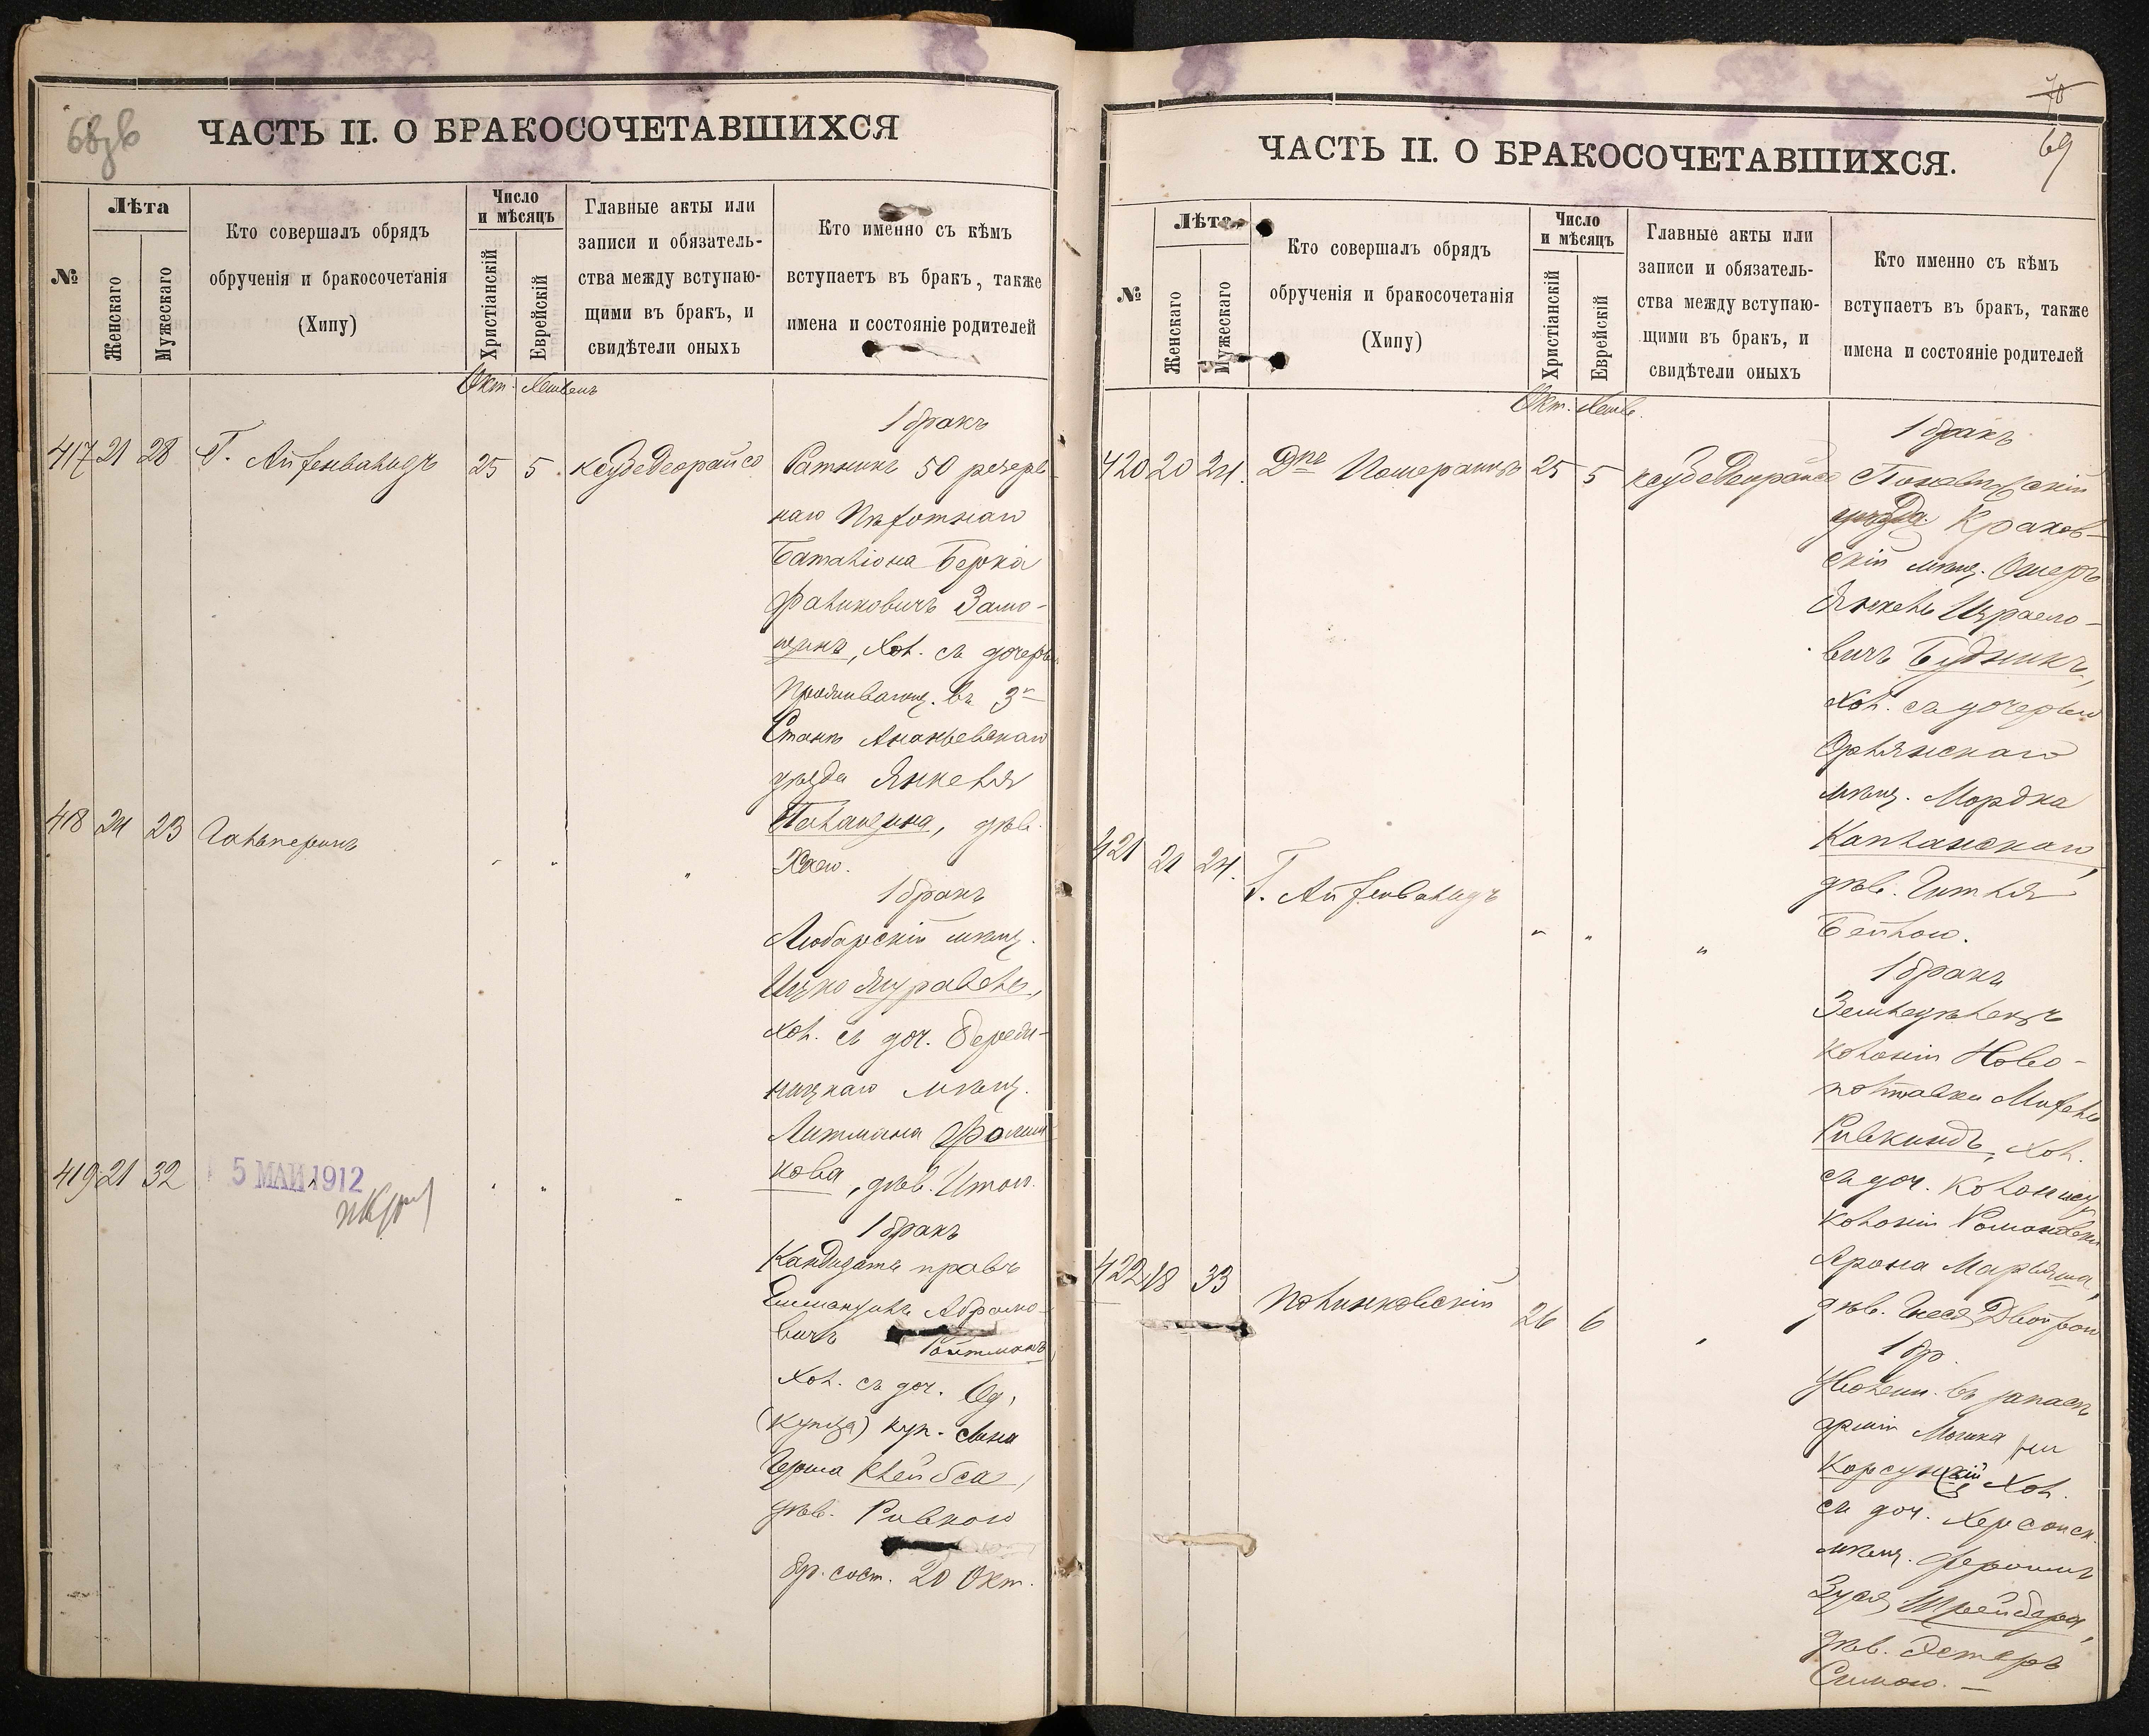 68 об
ЧАСТЬ II. О БРАКОСОЧЕТАВШИХСЯ
№
Лѣта
Женскаго
Мужескаго
Кто совершалъ обрядъ
обрученія и бракосочетанія
(Хипу)
Число
и мѣсяцъ
Христіанскій
Еврейскій
Главные акты или
записи и обязатель-
ства между вступаю-
щими въ бракъ, и
свидѣтели оныхъ
Кто именно съ кѣмъ
вступаетъ въ бракъ, также
имена и состояніе родителей
Окт. Хешвенъ
1 бракъ
417 21 28 Г. Айзенвальдъ 25 5 ксубедеорайсо Ратникъ 50 резерв-
наго Пѣхотнаго
Баталіона Берка
Фальковичъ Замо-
щинъ, хол. съ дочерью
проживающ. въ 3м
Станѣ Ананьевскаго
уѣзда Янкеля
дѣв.
Хаею.
418 21 23 Гальперинъ " " "
1 бракъ
Любарскій мѣщ.
Ицко Журавель,
хол. съ доч.
мѣщ.
Литмана
кова, дѣв. Итою.
419 21 32 5 МАЙ 1912 " " "
1 бракъ
Кандидатъ правъ
Абрамо-
вичъ
Ройтманъ
хол. съ доч. Од.
(купца) куп. сына
Герша Клейбса,
дѣв. Ривкою
бр. сост. 20 Окт.
70
69
ЧАСТЬ II. О БРАКОСОЧЕТАВШИХСЯ.
№
Лѣта
Женскаго
Мужескаго
Кто совершалъ обрядъ
обрученія и бракосочетанія
(Хипу)
Число
и мѣсяцъ
Христіанскій
Еврейскій
Главные акты или
записи и обязатель-
ства между вступаю-
щими въ бракъ, и
свидѣтели оныхъ
Кто именно съ кѣмъ
вступаетъ въ бракъ, также
имена и состояніе родителей
Окт. Хешв.
1 бракъ
420 20 24. Дръ Померанцъ 25 5 ксубедеорайсо
уѣзда Краков-
скій мѣщ. Ошеръ
Янкель Израело-
вичъ Будникъ,
хол. съ дочерью
мѣщ. Мордка
Капланскаго,
дѣв. Гитля
Бейлою.
421 21 24. Г. Айзенвальдъ " " "
1 бракъ
Земледѣлецъ
колоніи Ново-
полтавки Михель
Ривкиндъ, хол.
съ доч. колониста
колоніи Романовки
Арона Марьяша,
дѣв. Гнеся Двойрою
422 18 33 Полинковскій 26 6 "
1 бр.
Уволен. въ запасъ
арміи Мошка
Корсунскій хол.
съ доч. Херсонск.
мѣщ.
Зуся Шрейбера,
дѣв. Эстеръ
Симою. —